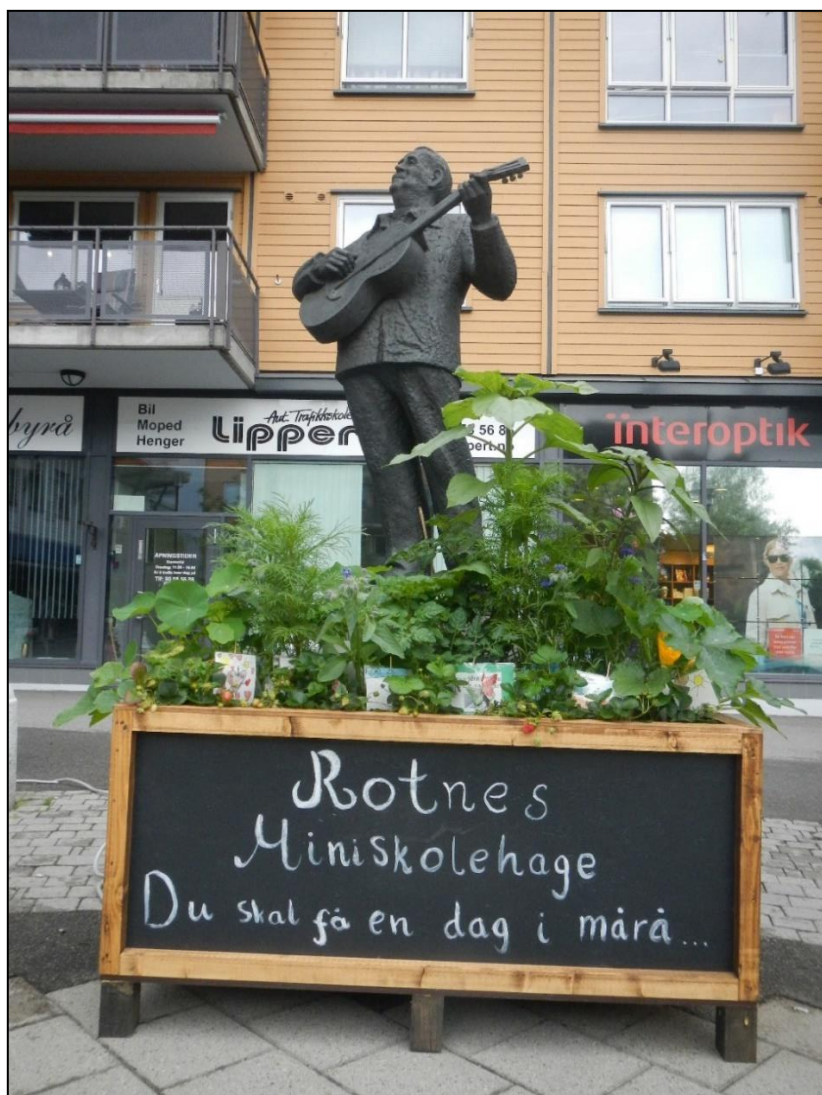 byrå
Bil
Moped
Henger
Aut. Trafikkskole
Lipper
3 56 8
pert.n
interoptik
ÅPNINGSTIDER
Rotnes
Miniskolehage
Du skal få en dag i mårå...